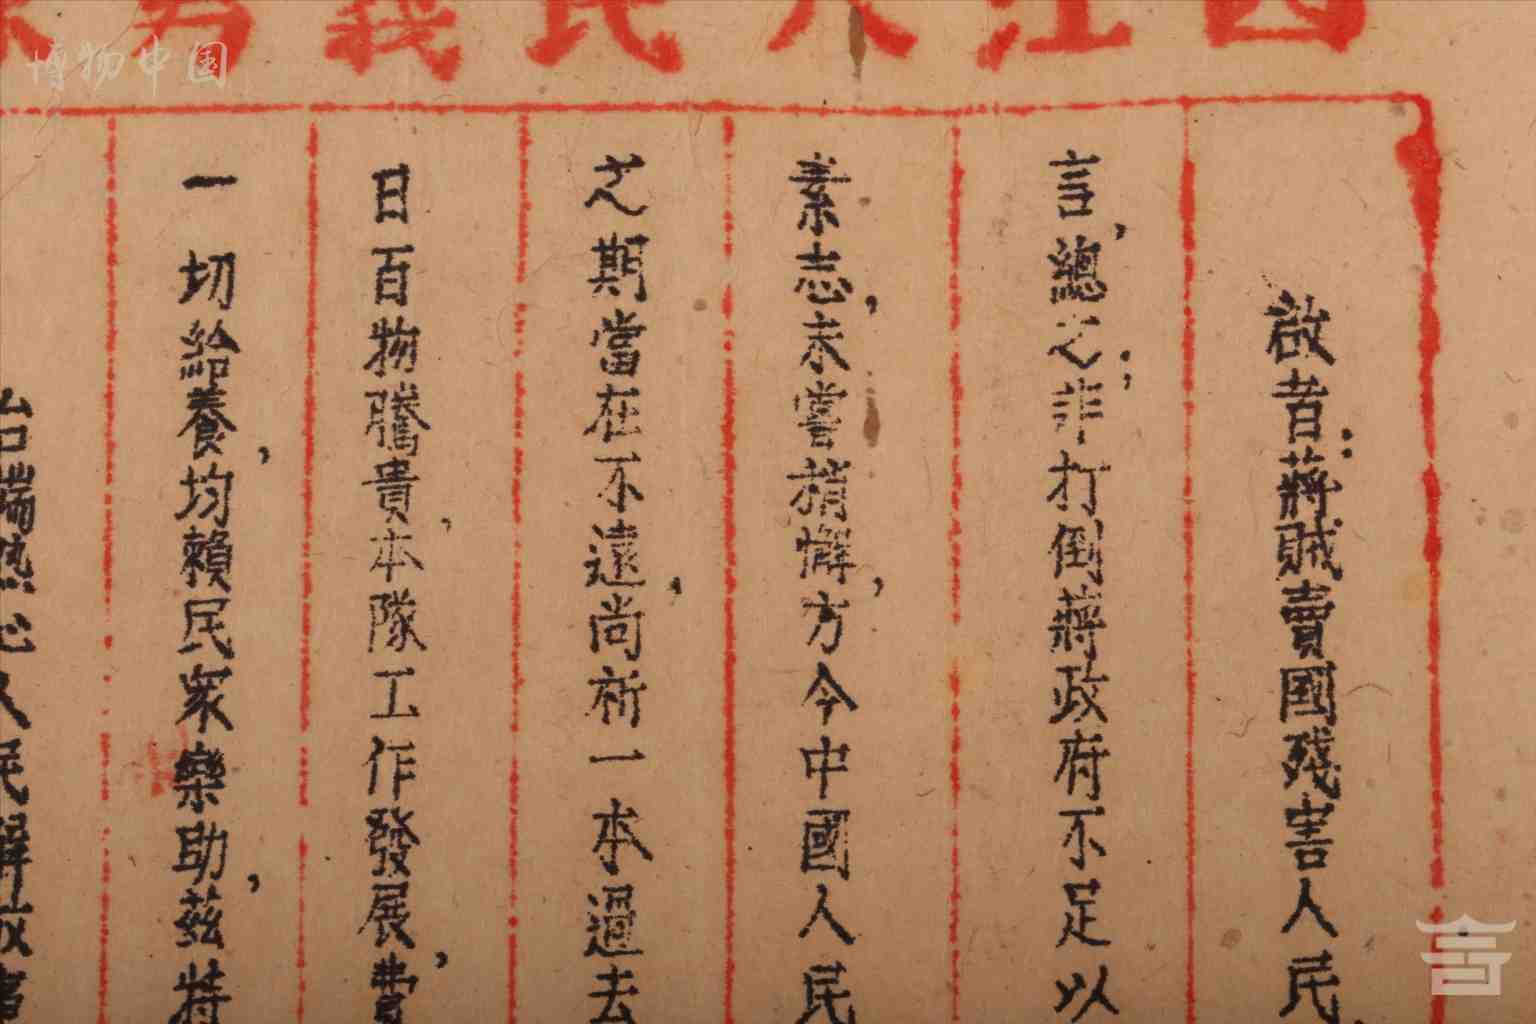 西江人民義勇隊
啟者：蔣賊賣國殘害人民，
言，總之；非打倒蔣政府不足以
素志，未嘗稍懈，方今中國人民
之期當在不遠，尚祈一本過去
日百物騰貴，本隊工作發展，費
一切給養，均賴民眾樂助，茲將
台端熱心人民解放事
博物中国